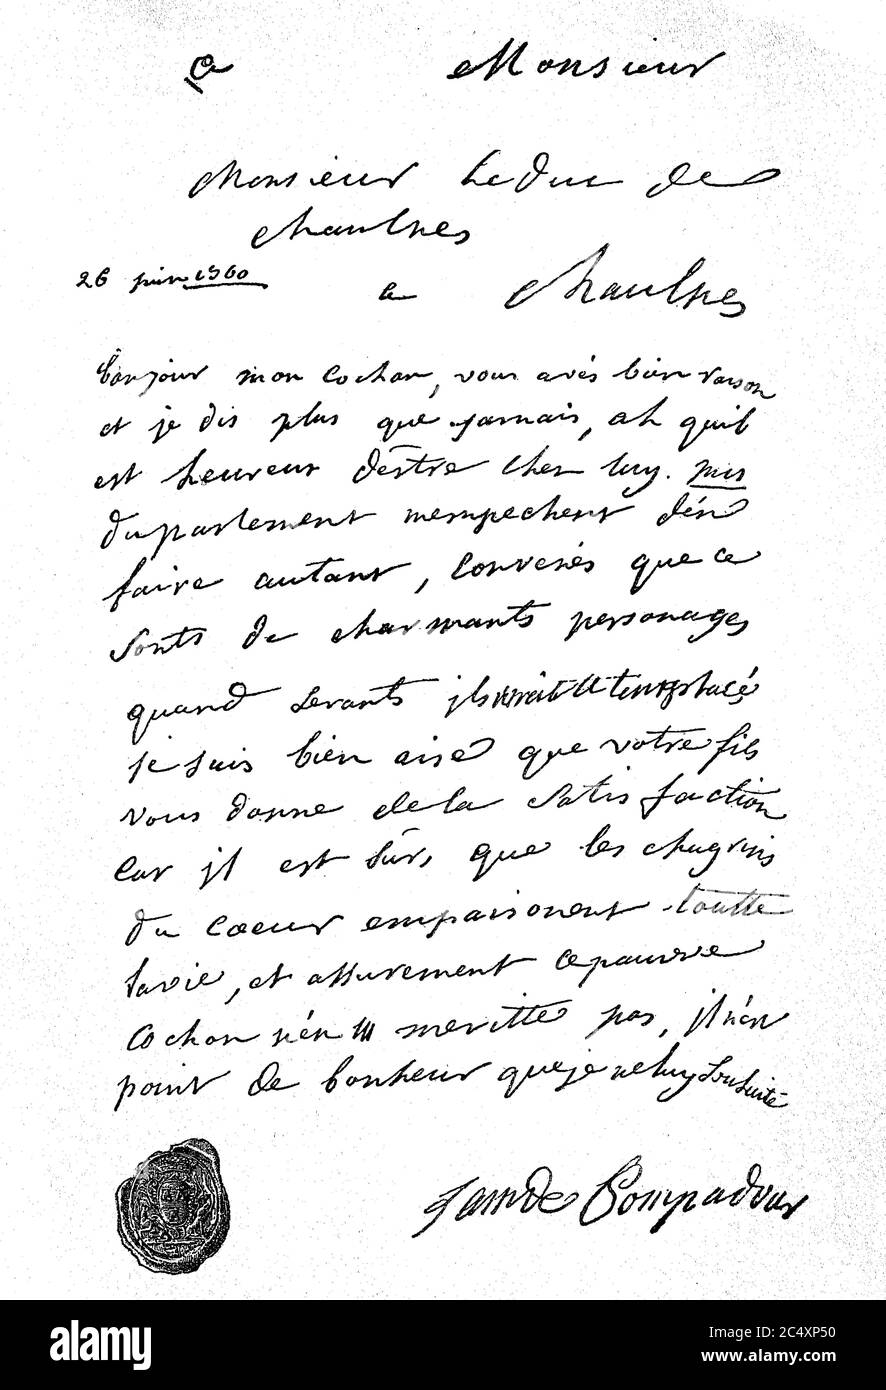 a Monsieur
Monsieur Le duc de
Chaulnes
26 juin 1760
a Chaulnes
bonjour mon Cochon, vous avés bien raison
et je dis plus que jamais, ah quil
est heureux dêstre cher luy. mrs
du parlement mempechent dén
faire autant, Convenés que ce
sonts de charmants personages
quand Levants
je suis bien aise que votre fils
vous donne de la satisfaction
Car jl est sûrs que les chagrins
du Coeur empoisonent toutte
lavie, et assurement ce pauvre
Cochon nén meritte pas, jl nén
point de bonheur queje neluy souhaite
de Pompadour
alamy
Image ID: 2C4XP50
www.alamy.com